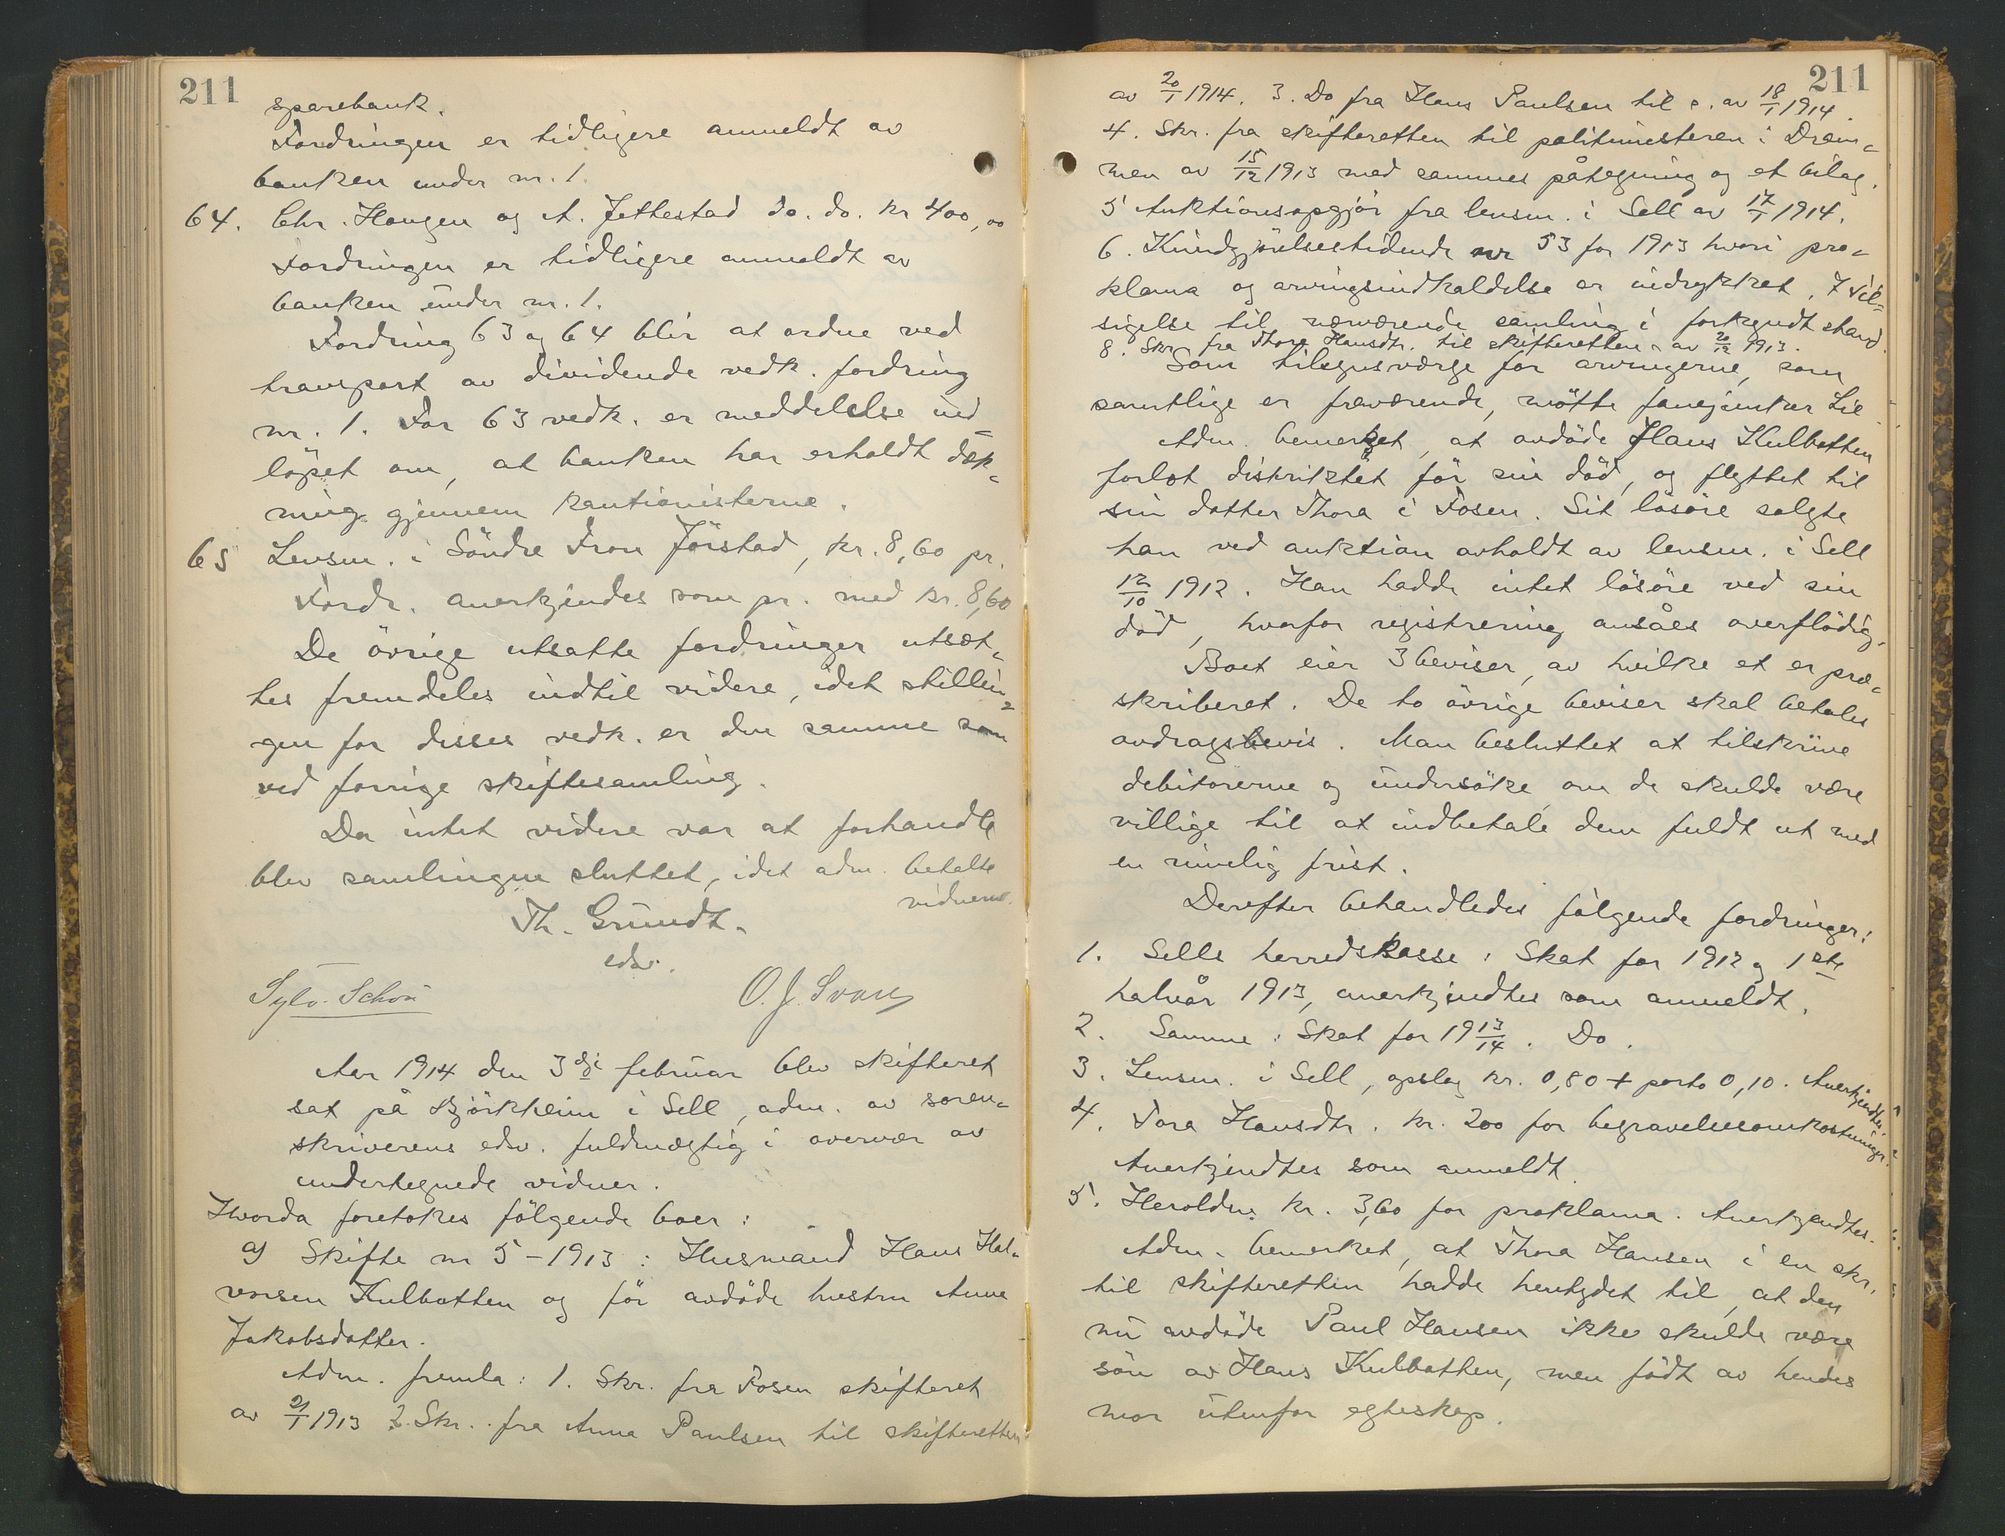 211
sparebank.
Fordringen er tidligere anmeldt av
banken under nr. 1.
64. Chr. Haugen og A. Jettestad do. do. kr 400,00
Fordringen er tidligere anmeldt av
banken under nr. 1.
Fordring 63 og 64 blir at ordne ved
transport av dividende vedk. fordring
nr. 1. For 63 vedk. er meddelelse ind-
löpet om, at banken har erholdt dæk-
ning gjennem kautionisterne.
65 Lensm. i Söndre Fron Jörstad, kr. 8,60 pr.
Fordr. anerkjendes som pr. med kr. 8,60
De övrige utsatte fordringer utsæt-
tes fremdeles indtil videre, idet stillin-
gen for disses vedk. er den samme som
ved forrige skiftesamling.
Da intet videre var at forhandle
blev samlingen sluttet, idet adm. betalte
vidnerne.
Th. Grundt.
edsv.
Sylv. Schou
O. J. Svare
Aar 1914 den 3dje februar blev skifteret
sat på Björkheim i Sell, adm. av soren-
skriverens edsv. fuldmægtig i overvær av
undertegnede vidner.
Hvorda foretokes fölgende boer:
a) Skifte nr 5-1913: Husmand Hans Hal-
vorsen Kulbotten og för avdöde hustru Anne
Jakobsdatter.
Adm. fremla: 1. Skr. fra Fosen skifteret
av 21/1 1913 2. Skr. fra Anna Paulsen til skifteretten
211
av 20/1 1914. 3. Do fra Hans Paulsen til s. av 18/1 1914.
4. Skr. fra skifteretten til politimesteren i Dram-
men av 15/12 1913 med sammes påtegning og et bilag.
5 Auktionsopgjör fra lensm. i Sell av 17/1 1914.
6. Kundgjörelsestidende nr 53 for 1913 hvori pro-
klama og arvingsindkaldelse er indrykket. 7 Til-
sigelse til nærværende samling i forkyndt stand.
8. Skr. fra Thora Hansdtr. til skifteretten av 20/12 1913.
Som tilsynsværge for arvingerne, som
samtlige er fraværende, mötte fanejunker Lie
Adm. bemerket, at avdöde Hans Kulbotten
forlot distriktet för sin död, og flyttet til
sin datter Thora i Fosen. Sit lösöre solgte
han ved auktion avholdt av lensm. i Sell
12/10 1912. Han hadde intet lösöre ved sin
död, hvorfor registrering ansåes overflödig.
Boet eier 3 beviser, av hvilke et er præ-
skriberet. De to övrige beviser skal betales
avdragsbevis. Man besluttet at tilskrive
debitorerne og undersöke, om de skulde være
villige til at indbetale dem fuldt ut med
en rimelig frist.
Derefter behandledes fölgende fordringer:
1. Sells herredskasse: Skat for 1912 og 1ste
halvår 1913, anerkjendtes som anmeldt.
2. Samme: Skat for 1913/14. Do.
3. Lensm. i Sell, opslag kr. 0,80 + porto 0,10. Anerkjendtes.
4. Tora Hansdtr. kr. 200 for begravelsesomkostninger.
Anerkjendtes som anmeldt.
5. Herolden: kr. 3,60 for proklama. Anerkjendtes.
Adm. bemerket, at Thora Hansen i en skr.
til skifteretten hadde hentydet til, at den
nu avdöde Paul Hansen ikke skulde være
sön av Hans Kulbotten, men födt av hendes
mor utenfor egteskap.